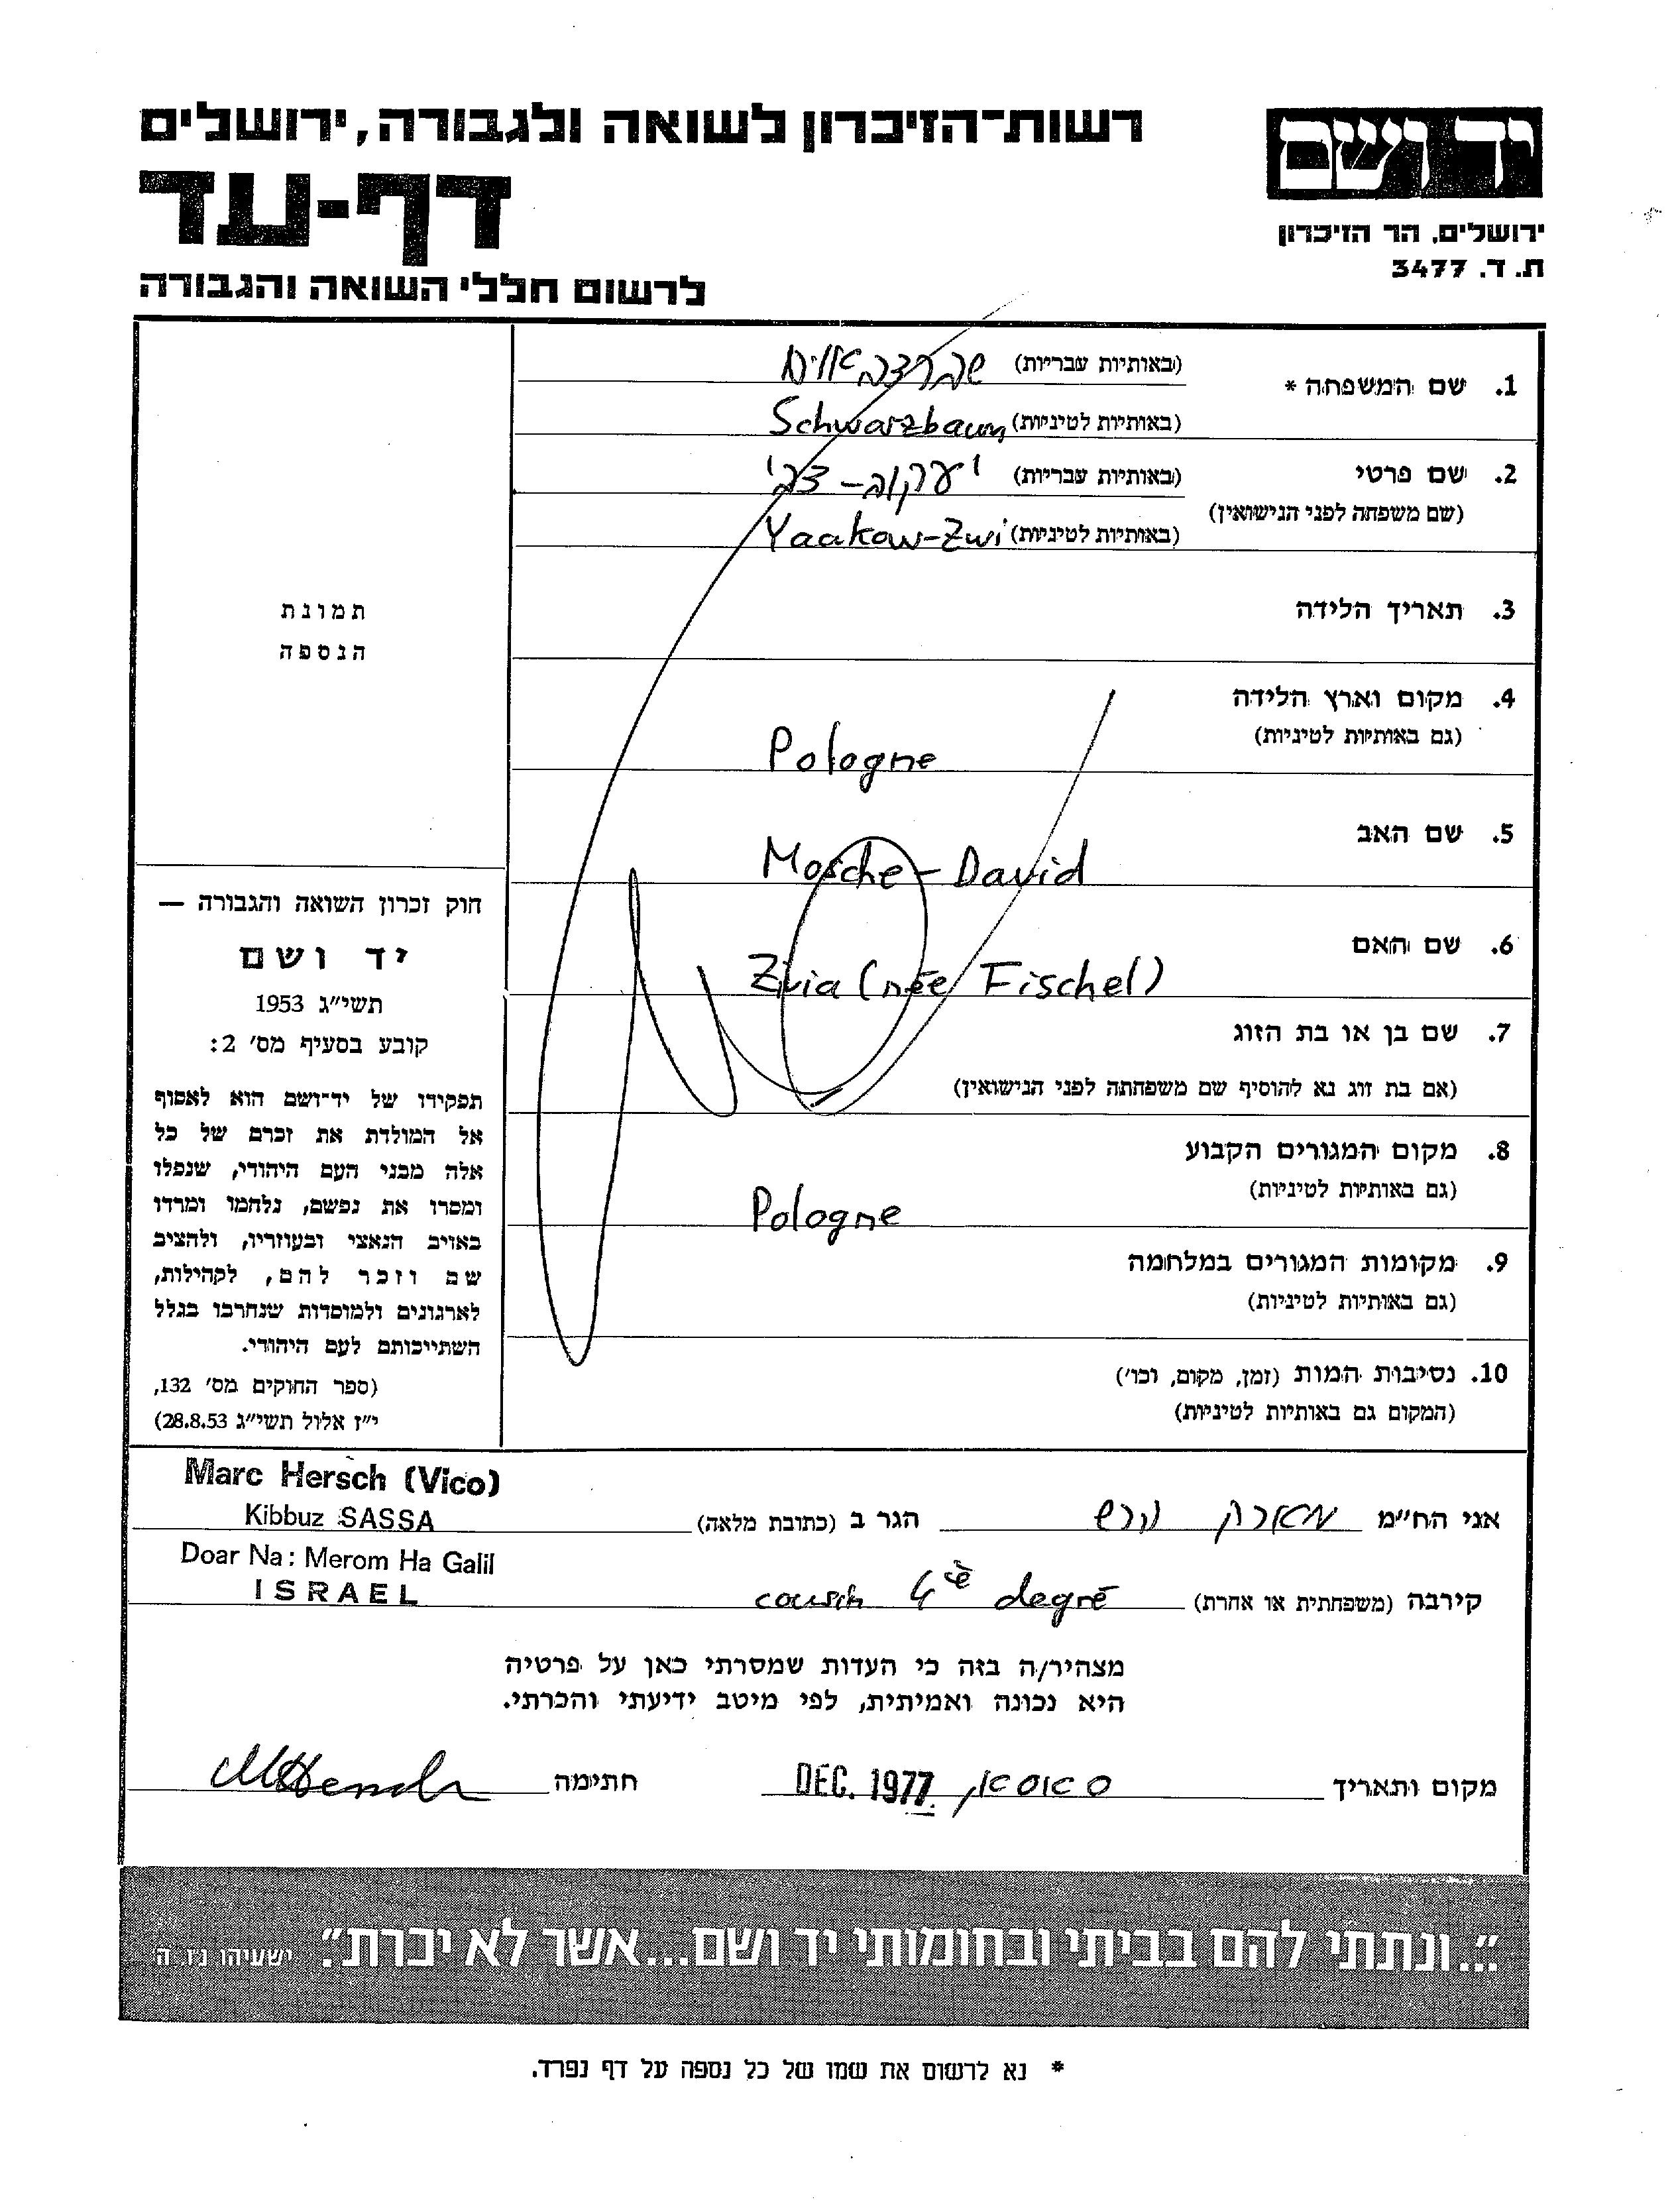 יד ושם
ירושלים, הר הזיכרון
ת. ד. 3477
רשות־הזיכרון לשואה ולגבורה, ירושלים
דף-עד
לרשום חללי השואה והגבורה
1. שם המשפחה * (באותיות עבריות) שברצבאום
(באותיות לטיניות) Schwarzbaum
2. שם פרטי (באותיות עבריות) יעקוב-צבי
(שם משפחה לפני הנישואין)
(באותיות לטיניות) Yaakow-Zwi
3. תאריך הלידה
4. מקום וארץ הלידה
(גם באותיות לטיניות) Pologne
5. שם האב Mosche-David
6. שם האם Zivia (née Fischel)
7. שם בן או בת הזוג
(אם בת זוג נא להוסיף שם משפחתה לפני הנישואין)
8. מקום המגורים הקבוע
(גם באותיות לטיניות) Pologne
9. מקומות המגורים במלחמה
(גם באותיות לטיניות)
10. נסיבות המות (זמן, מקום, וכו')
(המקום גם באותיות לטיניות)
תמונת
הנספה
חוק זכרון השואה והגבורה —
יד ושם
תשי"ג 1953
קובע בסעיף מס' 2:
תפקידו של יד־ושם הוא לאסוף
אל המולדת את זכרם של כל
אלה מבני העם היהודי, שנפלו
ומסרו את נפשם, נלחמו ומרדו
באויב הנאצי ובעוזריו, ולהציב
שם וזכר להם, לקהילות,
לארגונים ולמוסדות שנחרבו בגלל
השתייכותם לעם היהודי.
(ספר החוקים מס' 132,
י"ז אלול תשי"ג 28.8.53)
אני הח"מ מארק הרש הגר ב (כתובת מלאה)
Marc Hersch (Vico)
Kibbuz SASSA
Doar Na: Merom Ha Galil
ISRAEL
קירבה (משפחתית או אחרת) cousin 4è degré
מצהיר/ה בזה כי העדות שמסרתי כאן על פרטיה
היא נכונה ואמיתית, לפי מיטב ידיעתי והכרתי.
מקום ותאריך DEC. 1977 חתימה
"...ונתתי להם בביתי ובחומותי יד ושם...אשר לא יכרת". ישעיהו נ"ו, ה'
* נא לרשום את שמו של כל נספה על דף נפרד.